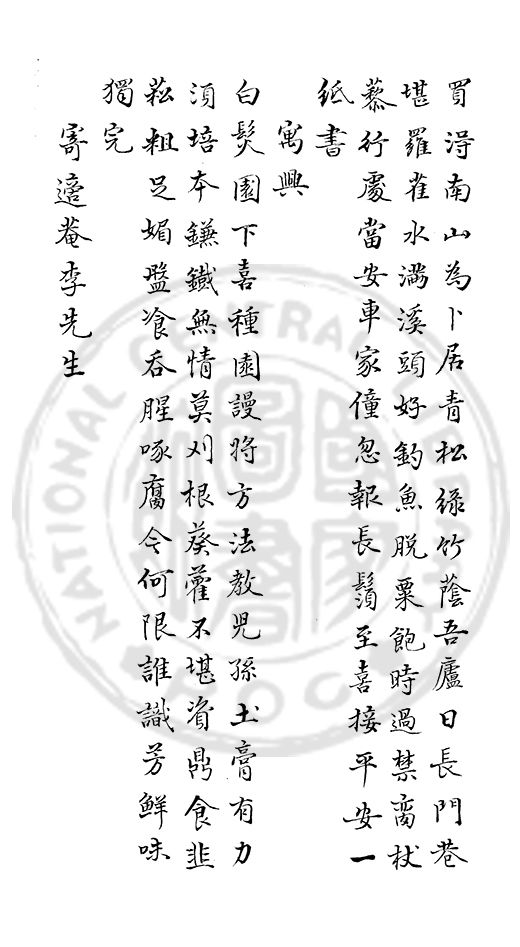 買得南山為卜居青松綠竹蔭吾廬日長門巷
堪羅雀水滿溪頭好釣魚脫粟飽時過禁臠杖
藜行處當安車家僮忽報長鬚至喜接平安一
紙書
寓興
白髮園下喜種園謾將方法教兒孫土膏有力
須培本鐮鐵無情莫刈根葵藿不堪資鼎食韭
菘粗足媚盤飡吞腥啄腐令何限誰識芳鮮味
獨完
寄適菴李先生
NATIONAL CENTRAL